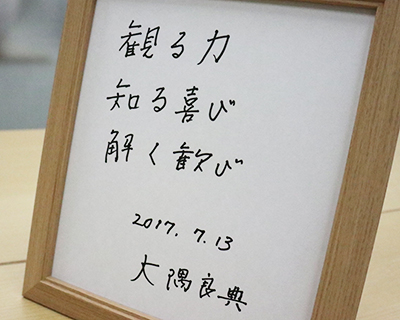 観る力
知る喜び
解く歓び
2017.7.13
大隅良典